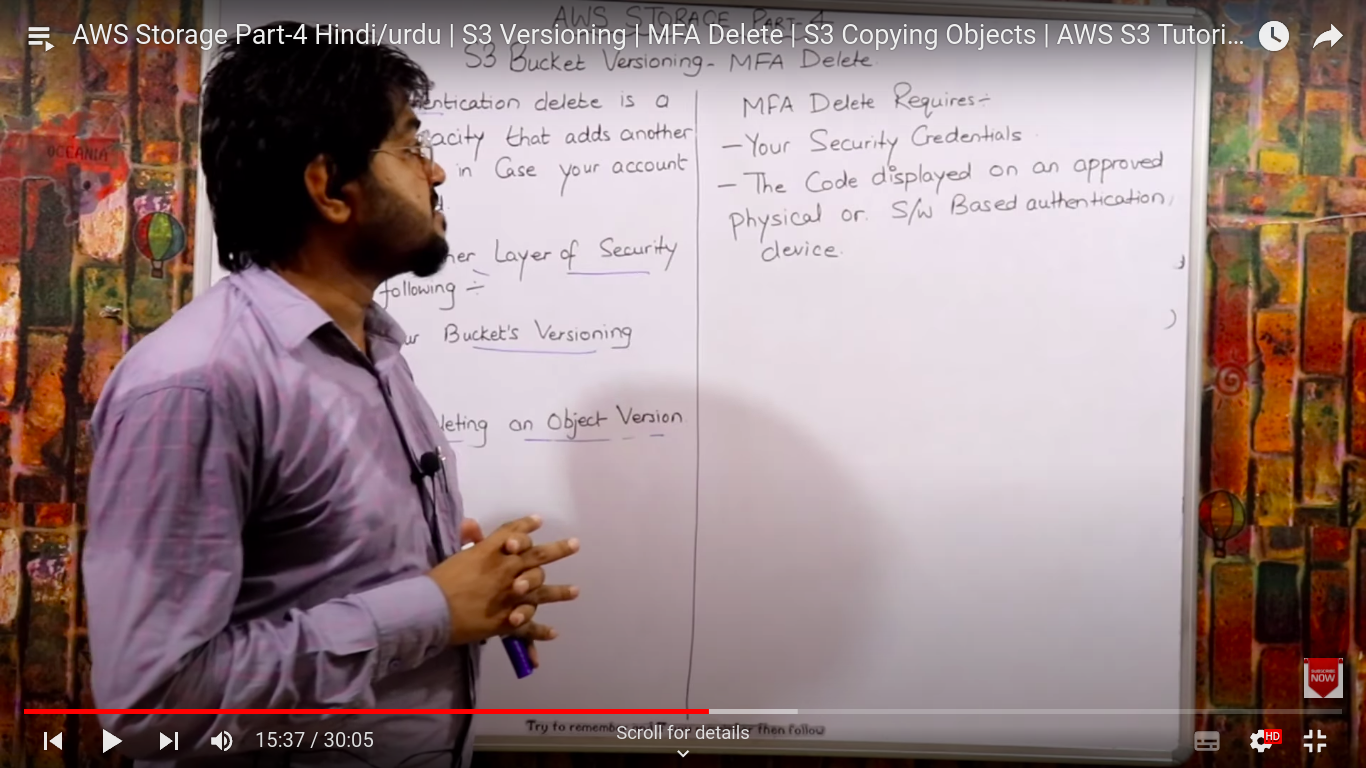 AWS Storage Part-4 Hindi/urdu | S3 Versioning | MFA Delete | S3 Copying Objects | AWS S3 Tutori...
AWS STORAGE PART-4
S3 Bucket Versioning- MFA Delete
entication delete is a
acity that adds another
in Case your account
her Layer of Security
following ÷
ur Bucket's Versioning
leting an Object Version
MFA Delete Requires÷
- Your Security Credentials
- The Code displayed on an approved
physical or S/W Based authentication
device.
OCEANIA
SUBSCRIBE
NOW
Try to remember then follow
Scroll for details
15:37 / 30:05
HD